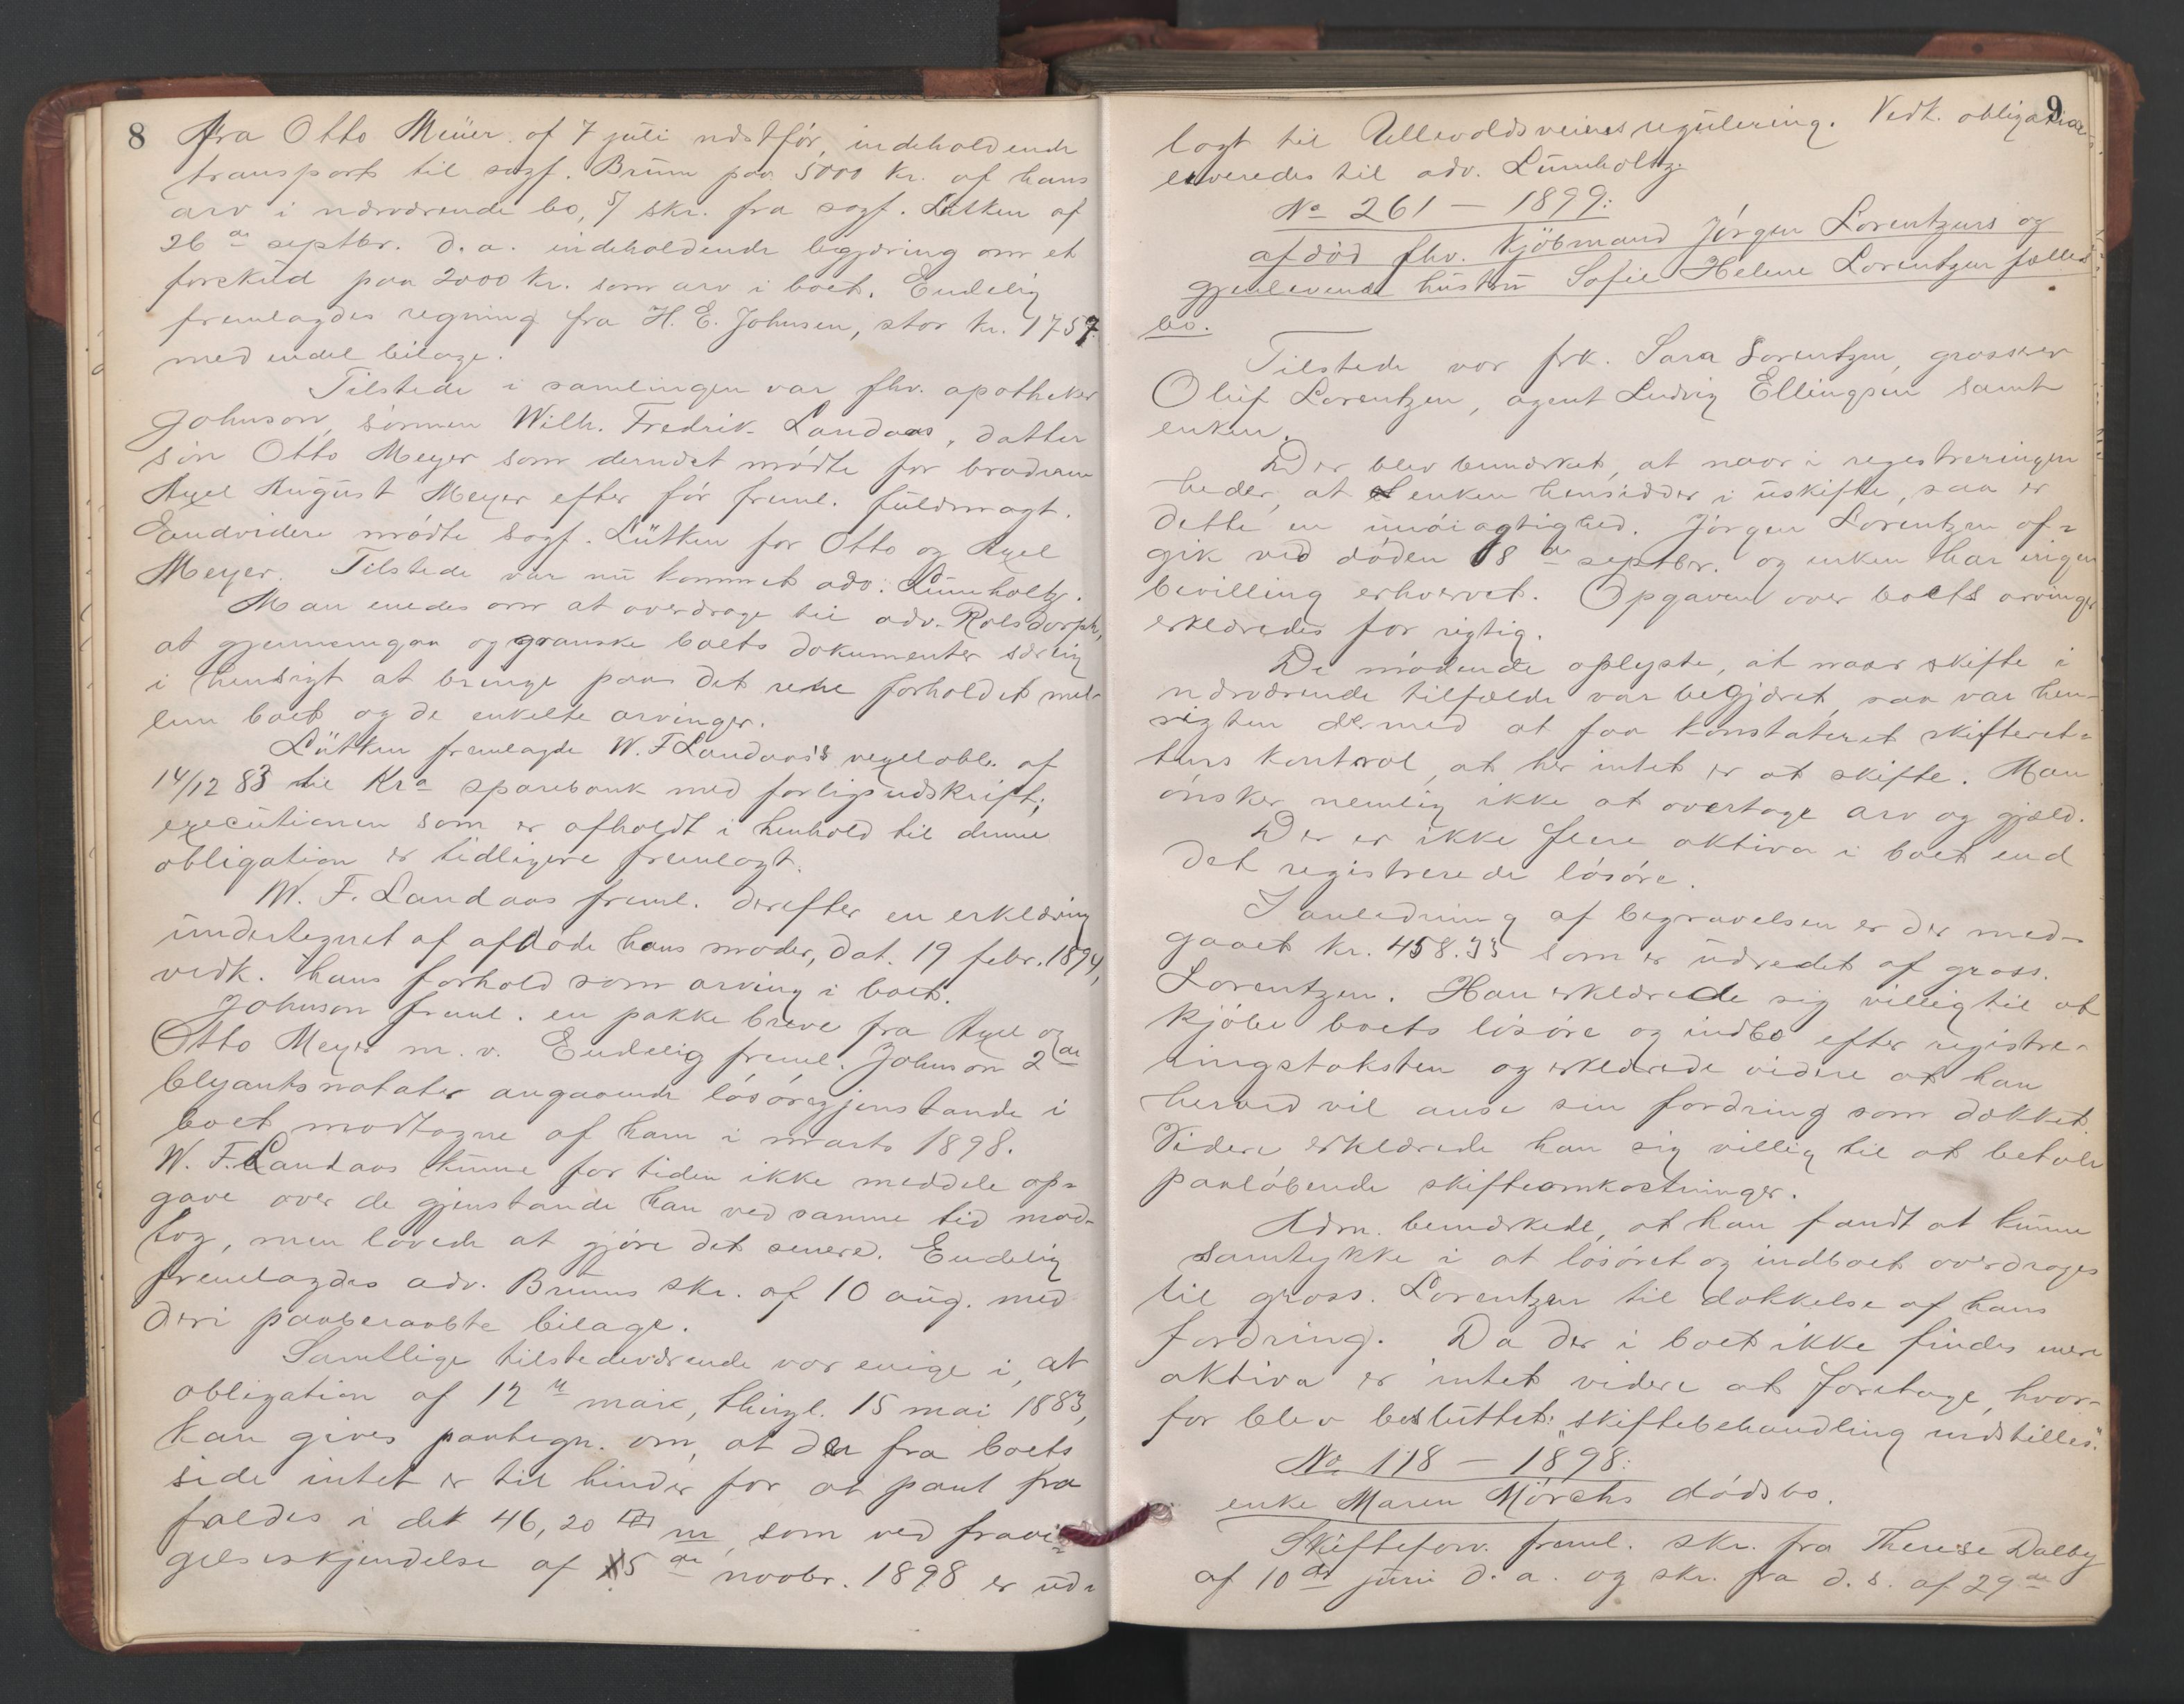 8
fra Otto Meüer af 7 juli ndstfór, indeholdende
transport til sagf. Brünn paa 5000 kr. af hans
arv i nærværende bo, 5/ skr. fra sagf. Lütken af
26de septbr. d. a. indeholdende begjæring om et
forskud paa 2000 kr. som arv i boet. Endelig
fremlagdes regning fra H. E. Johnsen, stor kr. 1757.
med endel bilage.
Tilstede i samlingen var fhv. apotheker
Johnson, sönnen Wilh. Fredrik Landaas, datter
sön Otto Meyer som derudet mödte for broderen
Axel August Meyer efter för freml. fuldmagt.
Eendvidere mödte sagf. Lütken for Otto og Axel
Meyer. Tilstede var nu kommet adv. Lumholtz.
Man enedes om at overdrage til adv. Rolsdorph,
at gjennemgaa og granske boets dokumenter særlig
i hensigt at bringe paa det rene forholdet mel-
lem boet og de enkelte arvinger.
Lütken fremlagde W. F Landaas's vexelobl. af
14/12 83 til Kra sparebank med forligsudskrift;
executionen som er afholdt i henhold til denne
obligation er tidligere fremlagt.
W. F. Landaas freml. derefter en erklæring
undertegnet af afdöde hans moder, dat. 19 febr. 1894,
vedk. hans forhold som arving i boet.
Johnson freml. en pakke breve fra Axel og
Otto Meyer m. v. Endelig freml. Johnson 2de
blyantsnotater angaaende lösöregjenstande i
boet modtagne af ham i marts 1898.
W. F. Landaas kunne for tiden ikke meddele op-
gave over de gjenstande han ved samme tid mod-
tog, men lovede at gjöre det senere. Endelig
fremlagdes adv. Brünns skr. af 10 aug. med
deri paaberaabte bilage.
Samtlige tilstedeværende var enige i, at
obligation af 12te mai, thingl. 15 mai 1883,
kan gives paategn. om, at der fra boets
side intet er til hinder for at pant fra
faldes i det 46,20 □ m, som ved fravi-
gelseskjendelse af 5de novbr. 1898 er ud-
9
lagt til Ullevoldsveiens regulering. Vedk. obligation
leveredes til adv. Lumholtz.
No 261 — 1899:
afdöd fhv. kjöbmand Jörgen Lorentzens og
gjenlevende hustru Sofie Helene Lorentzen fælles
bo.
Tilstede var frk. Sara Lorentzen, grosserer
Oluf Lorentzen, agent Ludvig Ellingsen samt
enken.
Der blev bemærket, at naar i registreringen
heder, at enken hensidder i uskifte, saa er
dette en unöiagtighed. Jörgen Lorentzen af-
gik ved döden 18de septbr. og enken har ingen
bevilling erhvervet. Opgaven over boets arvinger
erklæredes for rigtig.
De mödende oplyste, at naar skifte i
nærværende tilfælde var begjæret, saa var hen-
sigten dermed at faa konstateret skifteret-
tens kontrol, at her intet er at skifte. Man
önsker nemlig ikke at overtage arv og gjæld.
Der er ikke flere aktiva i boet end
det registrerede lösöre.
I anledning af begravelsen er der med-
gaaet kr. 458.35 som er udredet af gross.
Lorentzen. Han erklærede sig villig til at
kjöbe boets lösöre og indbo efter registre-
ringstaksten og erklærede videre at han
herved vil anse sin fordring som dækket.
Videre erklærede han sig villig til at betale
paalöbende skifteomkostninger.
Adm. bemærkede, at han fandt at kunne
samtykke i at lösöret og indboet overdroges
til gross. Lorentzen til dækkelse af hans
fordring. Da der i boet ikke findes mere
aktiva er intet videre at foretage, hvor-
for blev besluttet: "skiftebehandling indstilles".
No 118 — 1898:
enke Maren Mörchs dödsbo.
Skifteforv. freml. skr. fra Therese Dalby
af 10de juni d. a. og skr. fra d. s. af 29de